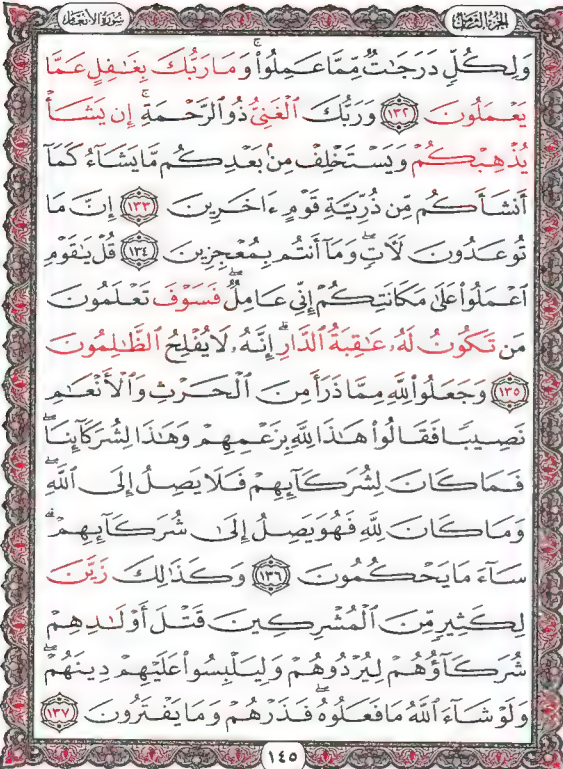 سورة الأنعام
الجزء الثامن
وَلِكُلٍّ دَرَجَٰتٌ مِّمَّا عَمِلُوا۟ ۚ وَمَا رَبُّكَ بِغَٰفِلٍ عَمَّا
يَعْمَلُونَ ١٣٢ وَرَبُّكَ ٱلْغَنِىُّ ذُو ٱلرَّحْمَةِ ۚ إِن يَشَأْ
يُذْهِبْكُمْ وَيَسْتَخْلِفْ مِنۢ بَعْدِكُم مَّا يَشَآءُ كَمَآ
أَنشَأَكُم مِّن ذُرِّيَّةِ قَوْمٍ ءَاخَرِينَ ١٣٣ إِنَّ مَا
تُوعَدُونَ لَءَاتٍ ۖ وَمَآ أَنتُم بِمُعْجِزِينَ ١٣٤ قُلْ يَٰقَوْمِ
ٱعْمَلُوا۟ عَلَىٰ مَكَانَتِكُمْ إِنِّى عَامِلٌ ۖ فَسَوْفَ تَعْلَمُونَ
مَن تَكُونُ لَهُۥ عَٰقِبَةُ ٱلدَّارِ ۗ إِنَّهُۥ لَا يُفْلِحُ ٱلظَّٰلِمُونَ
١٣٥ وَجَعَلُوا۟ لِلَّهِ مِمَّا ذَرَأَ مِنَ ٱلْحَرْثِ وَٱلْأَنْعَٰمِ
نَصِيبًا فَقَالُوا۟ هَٰذَا لِلَّهِ بِزَعْمِهِمْ وَهَٰذَا لِشُرَكَآئِنَا ۖ
فَمَا كَانَ لِشُرَكَآئِهِمْ فَلَا يَصِلُ إِلَى ٱللَّهِ ۖ
وَمَا كَانَ لِلَّهِ فَهُوَ يَصِلُ إِلَىٰ شُرَكَآئِهِمْ ۗ
سَآءَ مَا يَحْكُمُونَ ١٣٦ وَكَذَٰلِكَ زَيَّنَ
لِكَثِيرٍ مِّنَ ٱلْمُشْرِكِينَ قَتْلَ أَوْلَٰدِهِمْ
شُرَكَآؤُهُمْ لِيُرْدُوهُمْ وَلِيَلْبِسُوا۟ عَلَيْهِمْ دِينَهُمْ ۖ
وَلَوْ شَآءَ ٱللَّهُ مَا فَعَلُوهُ ۖ فَذَرْهُمْ وَمَا يَفْتَرُونَ ١٣٧
١٤٥